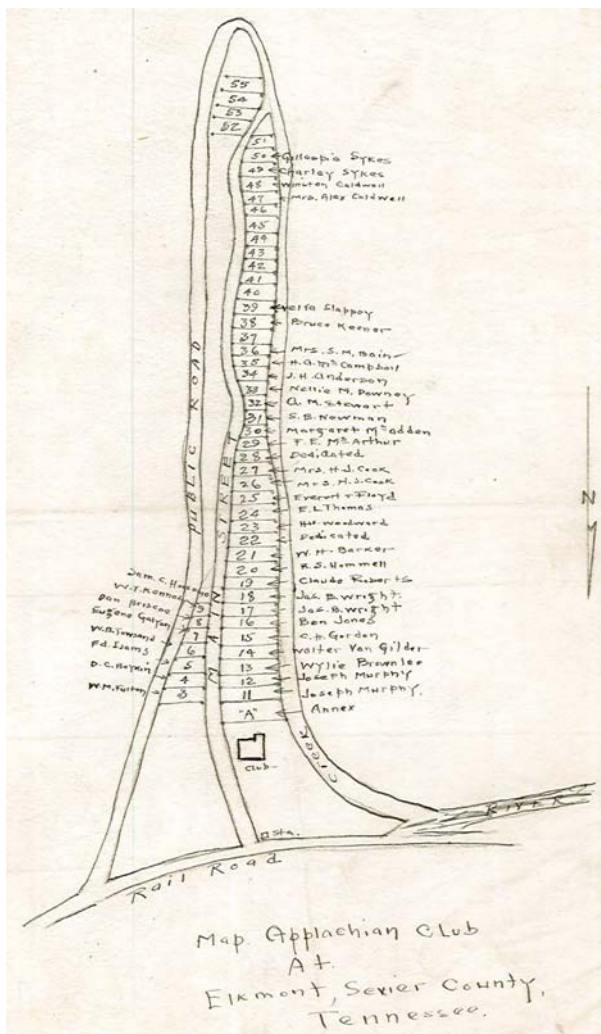 55
54
53
52
51
50 Gillespie Sykes
49 Charley Sykes
48 Winston Caldwell
47 Mrs. Alex Caldwell
46
45
44
43
42
41
40
39 Slappey
38 Bruce Keener
37
36 Mrs. S. M. Bain
35 H. A. McCampbell
34 J. H. Anderson
33 Nellie M. Downey
32 A. M. Stewart
31 S. B. Newman
30 Margaret
29 F. E. McArthur
28 Dedicated
27 Mrs. H. J. Cook
26 Mrs H. J. Cook
25 Everett & Floyd
24 E. L. Thomas
23 Woodward
22 Dedicated
21 W. H. Barker
20 R. S. Hommell
19 Claude Roberts
18 Jas. B. Wright.
17 Jas. B. Wright
16 Ben Jones
15 C. H. Gordon
14 Walter Van Gilder
13 Wylie Brownlee
12 Joseph Murphy
11 Joseph Murphy.
"A" Annex
PUBLIC ROAD
MAIN STREET
Sam. C.
W. T. Kennedy
Dan Briscoe 9
Eugene Galyon 8
W. B. Townsend 7
Ed. Isams 6
D. C. Boykin 5
4
W. M. Fulton 3
Club
Creek
RIVER
Sta.
Rail Road
N
Map Applachian Club
At
Elkmont, Sevier County,
Tennessee.